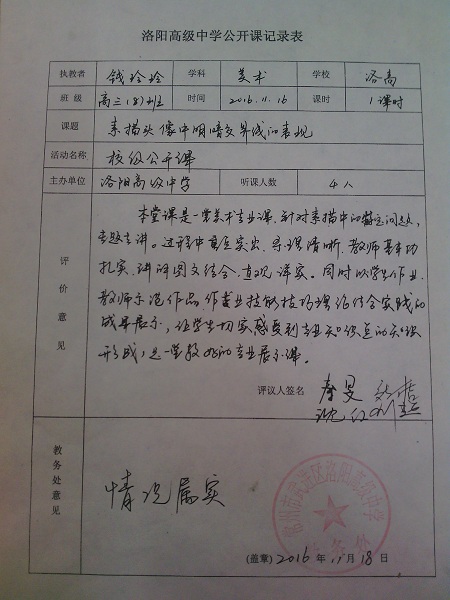 洛阳高级中学公开课记录表
执教者 钱玲玲 学科 美术 学校 洛高
班级 高三(8)班 时间 2016.11.16 课时 1课时
课题 素描头像中明暗交界线的表现
活动名称 校级公开课
主办单位 洛阳高级中学 听课人数 4人
评价意见
本堂课是一堂美术专业课,针对素描中的特定问题,
专题主讲。过程中重点突出、思路清晰、教师基本功
扎实、讲评图文结合、直观、详实。同时以学生作业、
教师示范作品,作专业技能技巧理论结合实践的
成果展示,让学生切实感受到专业知识点的知识
形成,是一堂较好的专业展示课。
评议人签名 秦旻
沈红
教务处意见
情况属实
常州市武进区洛阳高级中学
教务处
(盖章) 2016年11月18日